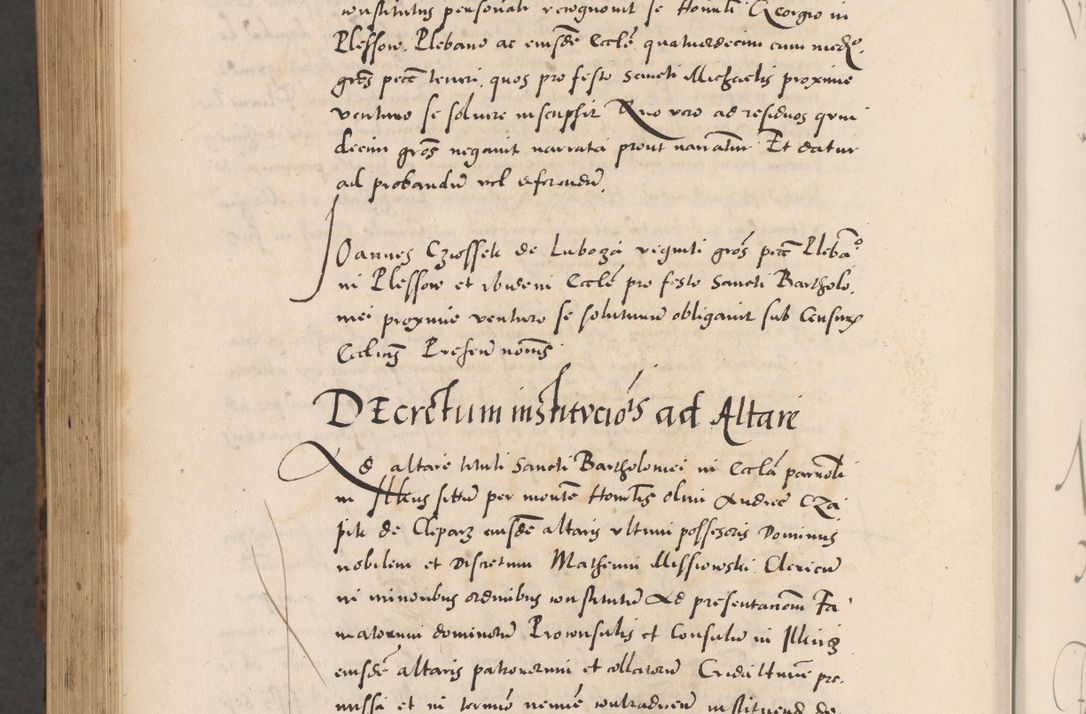 constitutus personalr recognovit se Honorli Georgio in
Plessow, Plebano ac eiusdē Ecclē quatuordecim cum medo,
gros pecē teneri, quos pro festo Sancti Michaelis proxime
venturo se solvere inscripsit Quo vero ad residuos quin
decim gros negavit narrata prout narrantur Et datur
ad probandū vel deferendū,
Joannes Cziossek de Luboza viginti gros pecē Plebāo
in Plessow et ibidem Ecclē pro festo Sancti Bartholo,
mei proxime venturo se soluturum obligavit sub Censuris
Ecclicis Presen nomis
DEcretum institucióis ad Altare
Ad altare tituli Sancti Bartholomei in Ecclā parrocli
in Ilkus situ per mortē Honorlis olim Andree Cza,
pik de Cleparz eiusdē altaris ultimi possessoris Dominus
nobilem et Discretum Matheum Missiowski Clericū
in minoribus ordinibus constitutū Ad presentationem Fa
matorum dominorū Proconsulis et Consulū in Ilkusz
eiusdē altaris patronorum et collatorū Crida ltimē pre,
missa et in termino nemine contradicen instituend de,